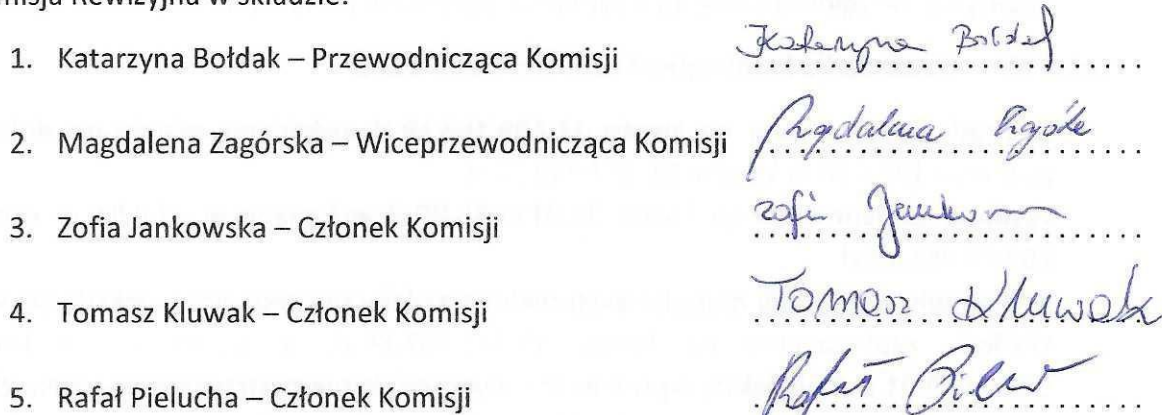 misja Rewizyjna w składzie:
1. Katarzyna Bołdak – Przewodnicząca Komisji Katarzyna Bołdak
2. Magdalena Zagórska – Wiceprzewodnicząca Komisji Magdalena
3. Zofia Jankowska – Członek Komisji Zofia Jankow
4. Tomasz Kluwak – Członek Komisji Tomasz Kluwak
5. Rafał Pielucha – Członek Komisji Rafał